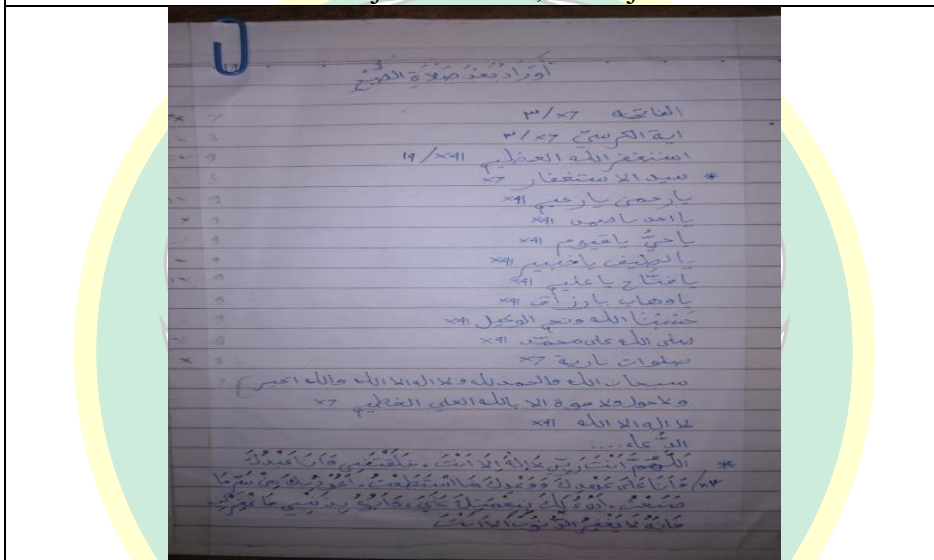 أَوْرَادُ بَعْدَ صَلَاةِ الصُّبْحِ
الفاتحة ×7 /٣
اية الكرسيّ ×7 /٣
استغفر الله العظيم ×41 /19
* سيد الاستغفار ×7
يارحمن يارحيم ×41
يا احد ×41
ياحيُّ ياقيوم ×41
يالطيف ياخبير ×41
يافتاح ياعليم ×41
ياوهاب يارزاق ×41
حَسْبُنَا الله ونعم الوكيل ×41
صلى الله على محمّد ×41
صلوات نارية ×7
سبحان الله والحمد لله ولا اله الا الله والله اكبر
ولاحول ولا قوة الا بالله العلي العظيم ×7
لا اله الا الله ×41
الدُّعاء....
* اَللّٰهُمَّ اَنْتَ رَبِّي لَا اِلٰهَ اِلَّا اَنْتَ، خَلَقْتَنِي وَاَنَا عَبْدُكَ
×3/ وَاَنَا عَلَى عَهْدِكَ وَوَعْدِكَ مَااسْتَطَعْتُ، اَعُوْذُ بِكَ مِنْ شَرِّ مَا
صَنَعْتُ، لَكَ بِنِعْمَتِكَ عَلَيَّ،